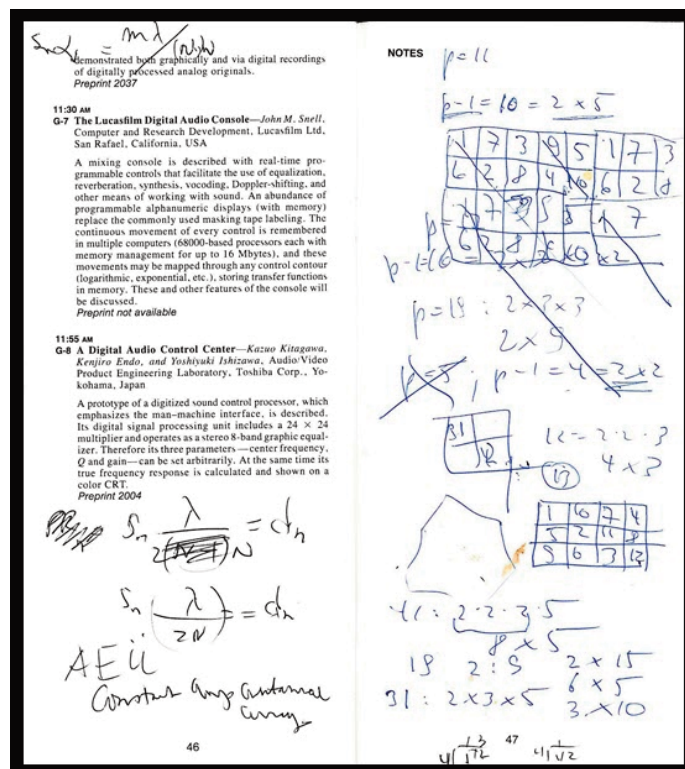 demonstrated both graphically and via digital recordings
of digitally processed analog originals.
Preprint 2037
11:30 AM
G-7 The Lucasfilm Digital Audio Console—John M. Snell,
Computer and Research Development, Lucasfilm Ltd,
San Rafael, California, USA
A mixing console is described with real-time pro-
grammable controls that facilitate the use of equalization,
reverberation, synthesis, vocoding, Doppler-shifting, and
other means of working with sound. An abundance of
programmable alphanumeric displays (with memory)
replace the commonly used masking tape labeling. The
continuous movement of every control is remembered
in multiple computers (68000-based processors each with
memory management for up to 16 Mbytes), and these
movements may be mapped through any control contour
(logarithmic, exponential, etc.), storing transfer functions
in memory. These and other features of the console will
be discussed.
Preprint not available
11:55 AM
G-8 A Digital Audio Control Center—Kazuo Kitagawa,
Kenjiro Endo, and Yoshiyuki Ishizawa, Audio/Video
Product Engineering Laboratory, Toshiba Corp., Yo-
kohama, Japan
A prototype of a digitized sound control processor, which
emphasizes the man–machine interface, is described.
Its digital signal processing unit includes a 24 × 24
multiplier and operates as a stereo 8-band graphic equal-
izer. Therefore its three parameters—center frequency,
Q and gain—can be set arbitrarily. At the same time its
true frequency response is calculated and shown on a
color CRT.
Preprint 2004
Sn λ/2N = dn
Sn (λ/2N) = dn
AEÜ
Constant amp antennal
array
46
NOTES
p=11
p-1=10=2×5
1 7 3 9 5 1 7 3
6 2 8 4 10 6 2 8
p=19: 2×3×3
2×9
p=5; p-1=4=2×2
12=2·2·3
4×3
13
1 10 7 4
5 2 11 8
9 6 3 12
41: 2·2·2·5
8×5
19 2:9 2×15
31: 2×3×5 6×5
3×10
47